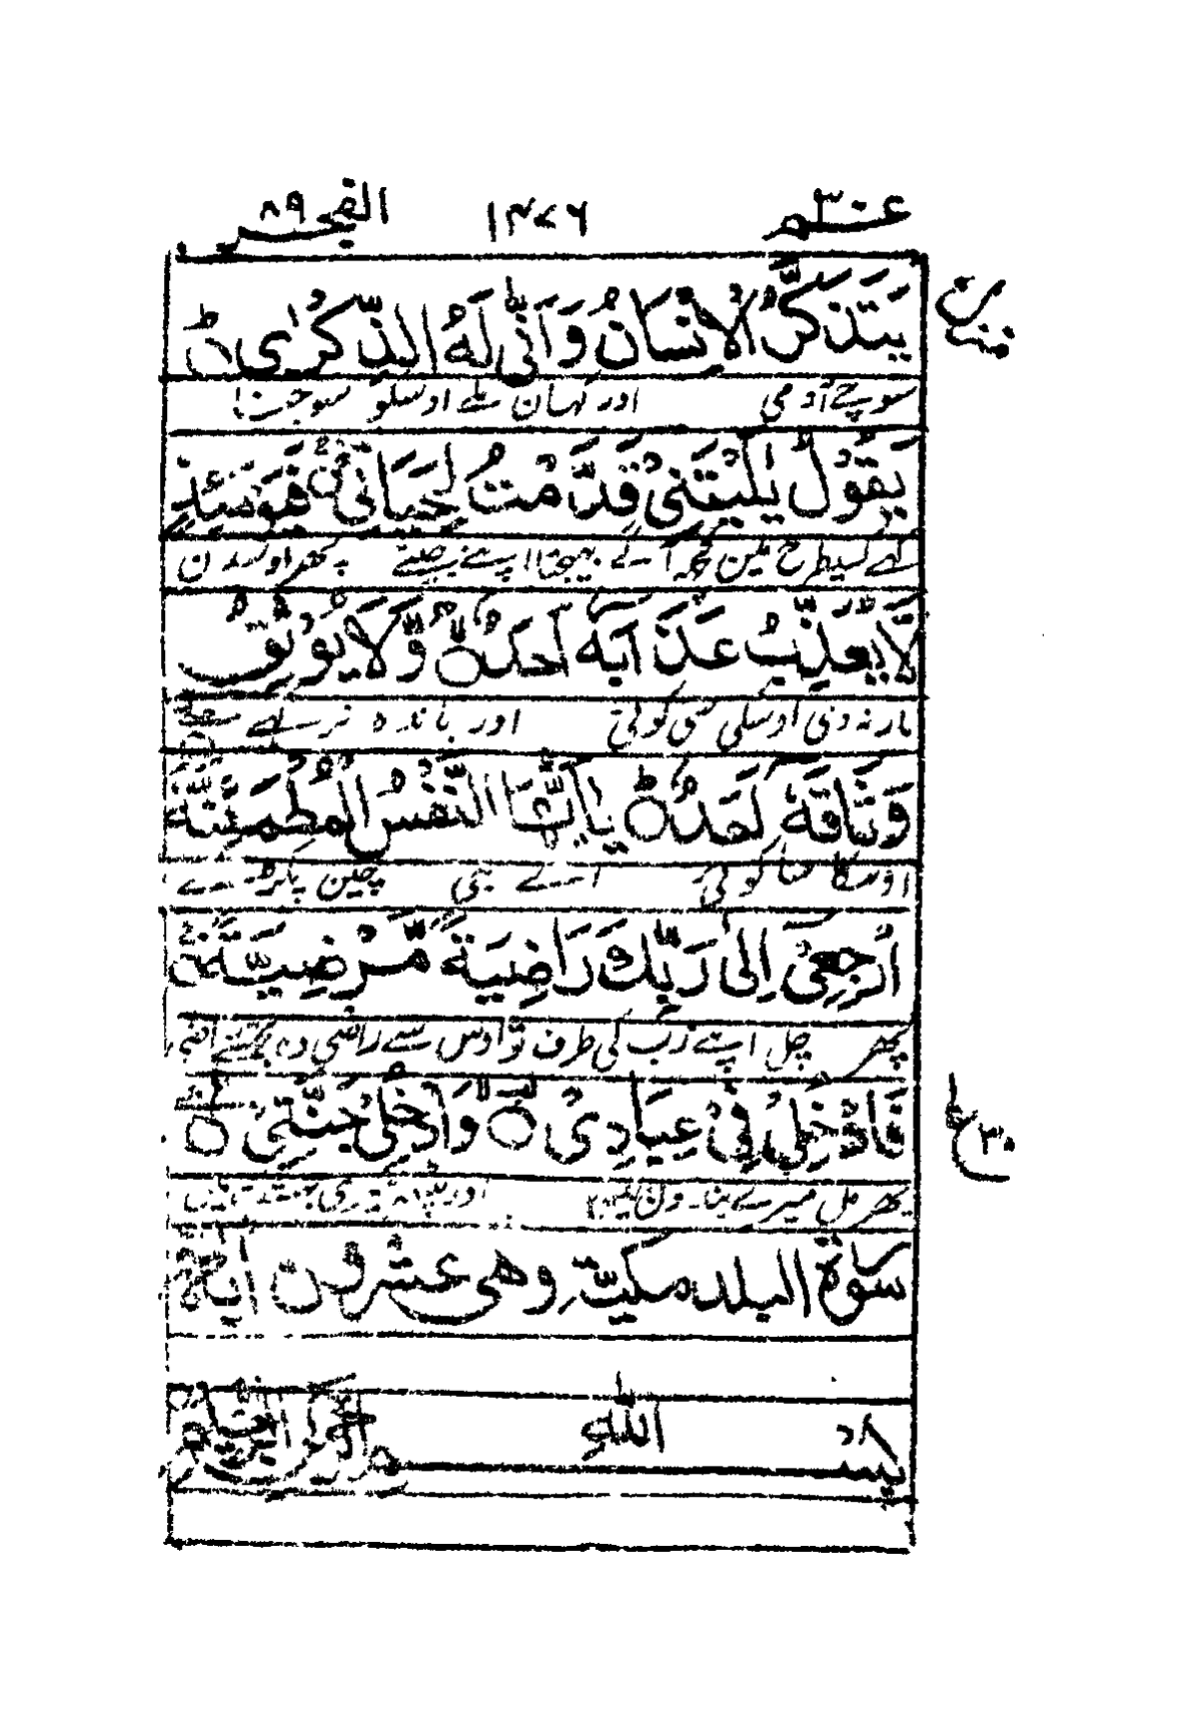 عم ٣٠ ١٤٧٦ الفجر ٨٩
يَتَذَكَّرُ الْاِنْسَانُ وَاَنّٰى لَهُ الذِّكْرٰى ط
سوچے آدمی اور کہان ملے اوسکو سوچنا
يَقُوْلُ يٰلَيْتَنِىْ قَدَّمْتُ لِحَيَاتِىْ فَيَوْمَئِذٍ
کہے کسیطرح مین کچھ آگے بھیجتا اپنے جیتے پھر اوسدن
لَّا يُعَذِّبُ عَذَابَهٗ اَحَدٌ وَّلَا يُوْثِقُ
مار نہ دی اوسکی سی کوئی اور باندہ نہ رکھے
وَثَاقَهٗ اَحَدٌ ط يٰاَيَّتُهَا النَّفْسُ الْمُطْمَئِنَّةُ
اوسکا سا کوئی اے جی چین پکڑے
ارْجِعِىْ اِلٰى رَبِّكِ رَاضِيَةً مَّرْضِيَّةً
پھر چل اپنے رب کی طرف تو اوس سے راضی وہ تجھسے راضی
فَادْخُلِىْ فِىْ عِبَادِىْ وَادْخُلِىْ جَنَّتِىْ
پھر مل میرے بندون مین اور میری بہشت مین
سورة البلد مكية وهى عشرون آية
بِسْمِ اللهِ الرحمن الرحيم